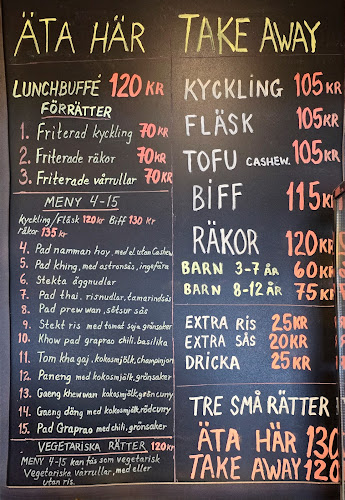 ÄTA HÄR
LUNCHBUFFÉ 120 KR
FÖRRÄTTER
1. Friterad kyckling 70 KR
2. Friterade räkor 70 KR
3. Friterade vårrullar 70 KR
MENY 4-15
Kyckling/Fläsk 120 kr Biff 130 kr
räkor 135 kr
4. Pad namman hoy, med el. utan Cashew
5. Pad khing, med astronsås, ingefära
6. Stekta äggnudlar
7. Pad thai, risnudlar, tamarindsås
8. Pad prew wan, sötsur sås
9. Stekt ris med tomat soja, grönsaker
10. Khow pad graprao chili, basilika
11. Tom kha gaj, kokosmjölk, champinjon
12. Paneng med kokosmjölk, grönsaker
13. Gaeng khew wan kokosmjölk, grön curry
14. Gaeng däng med kokosmjölk, röd curry
15. Pad Graprao med chili, grönsaker
VEGETARISKA RÄTTER 120 kr
MENY 4-15 kan fås som vegetarisk
Vegetariska vårrullar, med eller
utan ris.
TAKE AWAY
KYCKLING 105 KR
FLÄSK 105 KR
TOFU CASHEW. 105 KR
BIFF 115 K
RÄKOR 120 KR
BARN 3-7 ÅR 60 KR
BARN 8-12 ÅR 75 KR
EXTRA RIS 25 KR
EXTRA SÅS 20 KR
DRICKA 25 KR
TRE SMÅ RÄTTER
ÄTA HÄR 130
TAKE AWAY 120